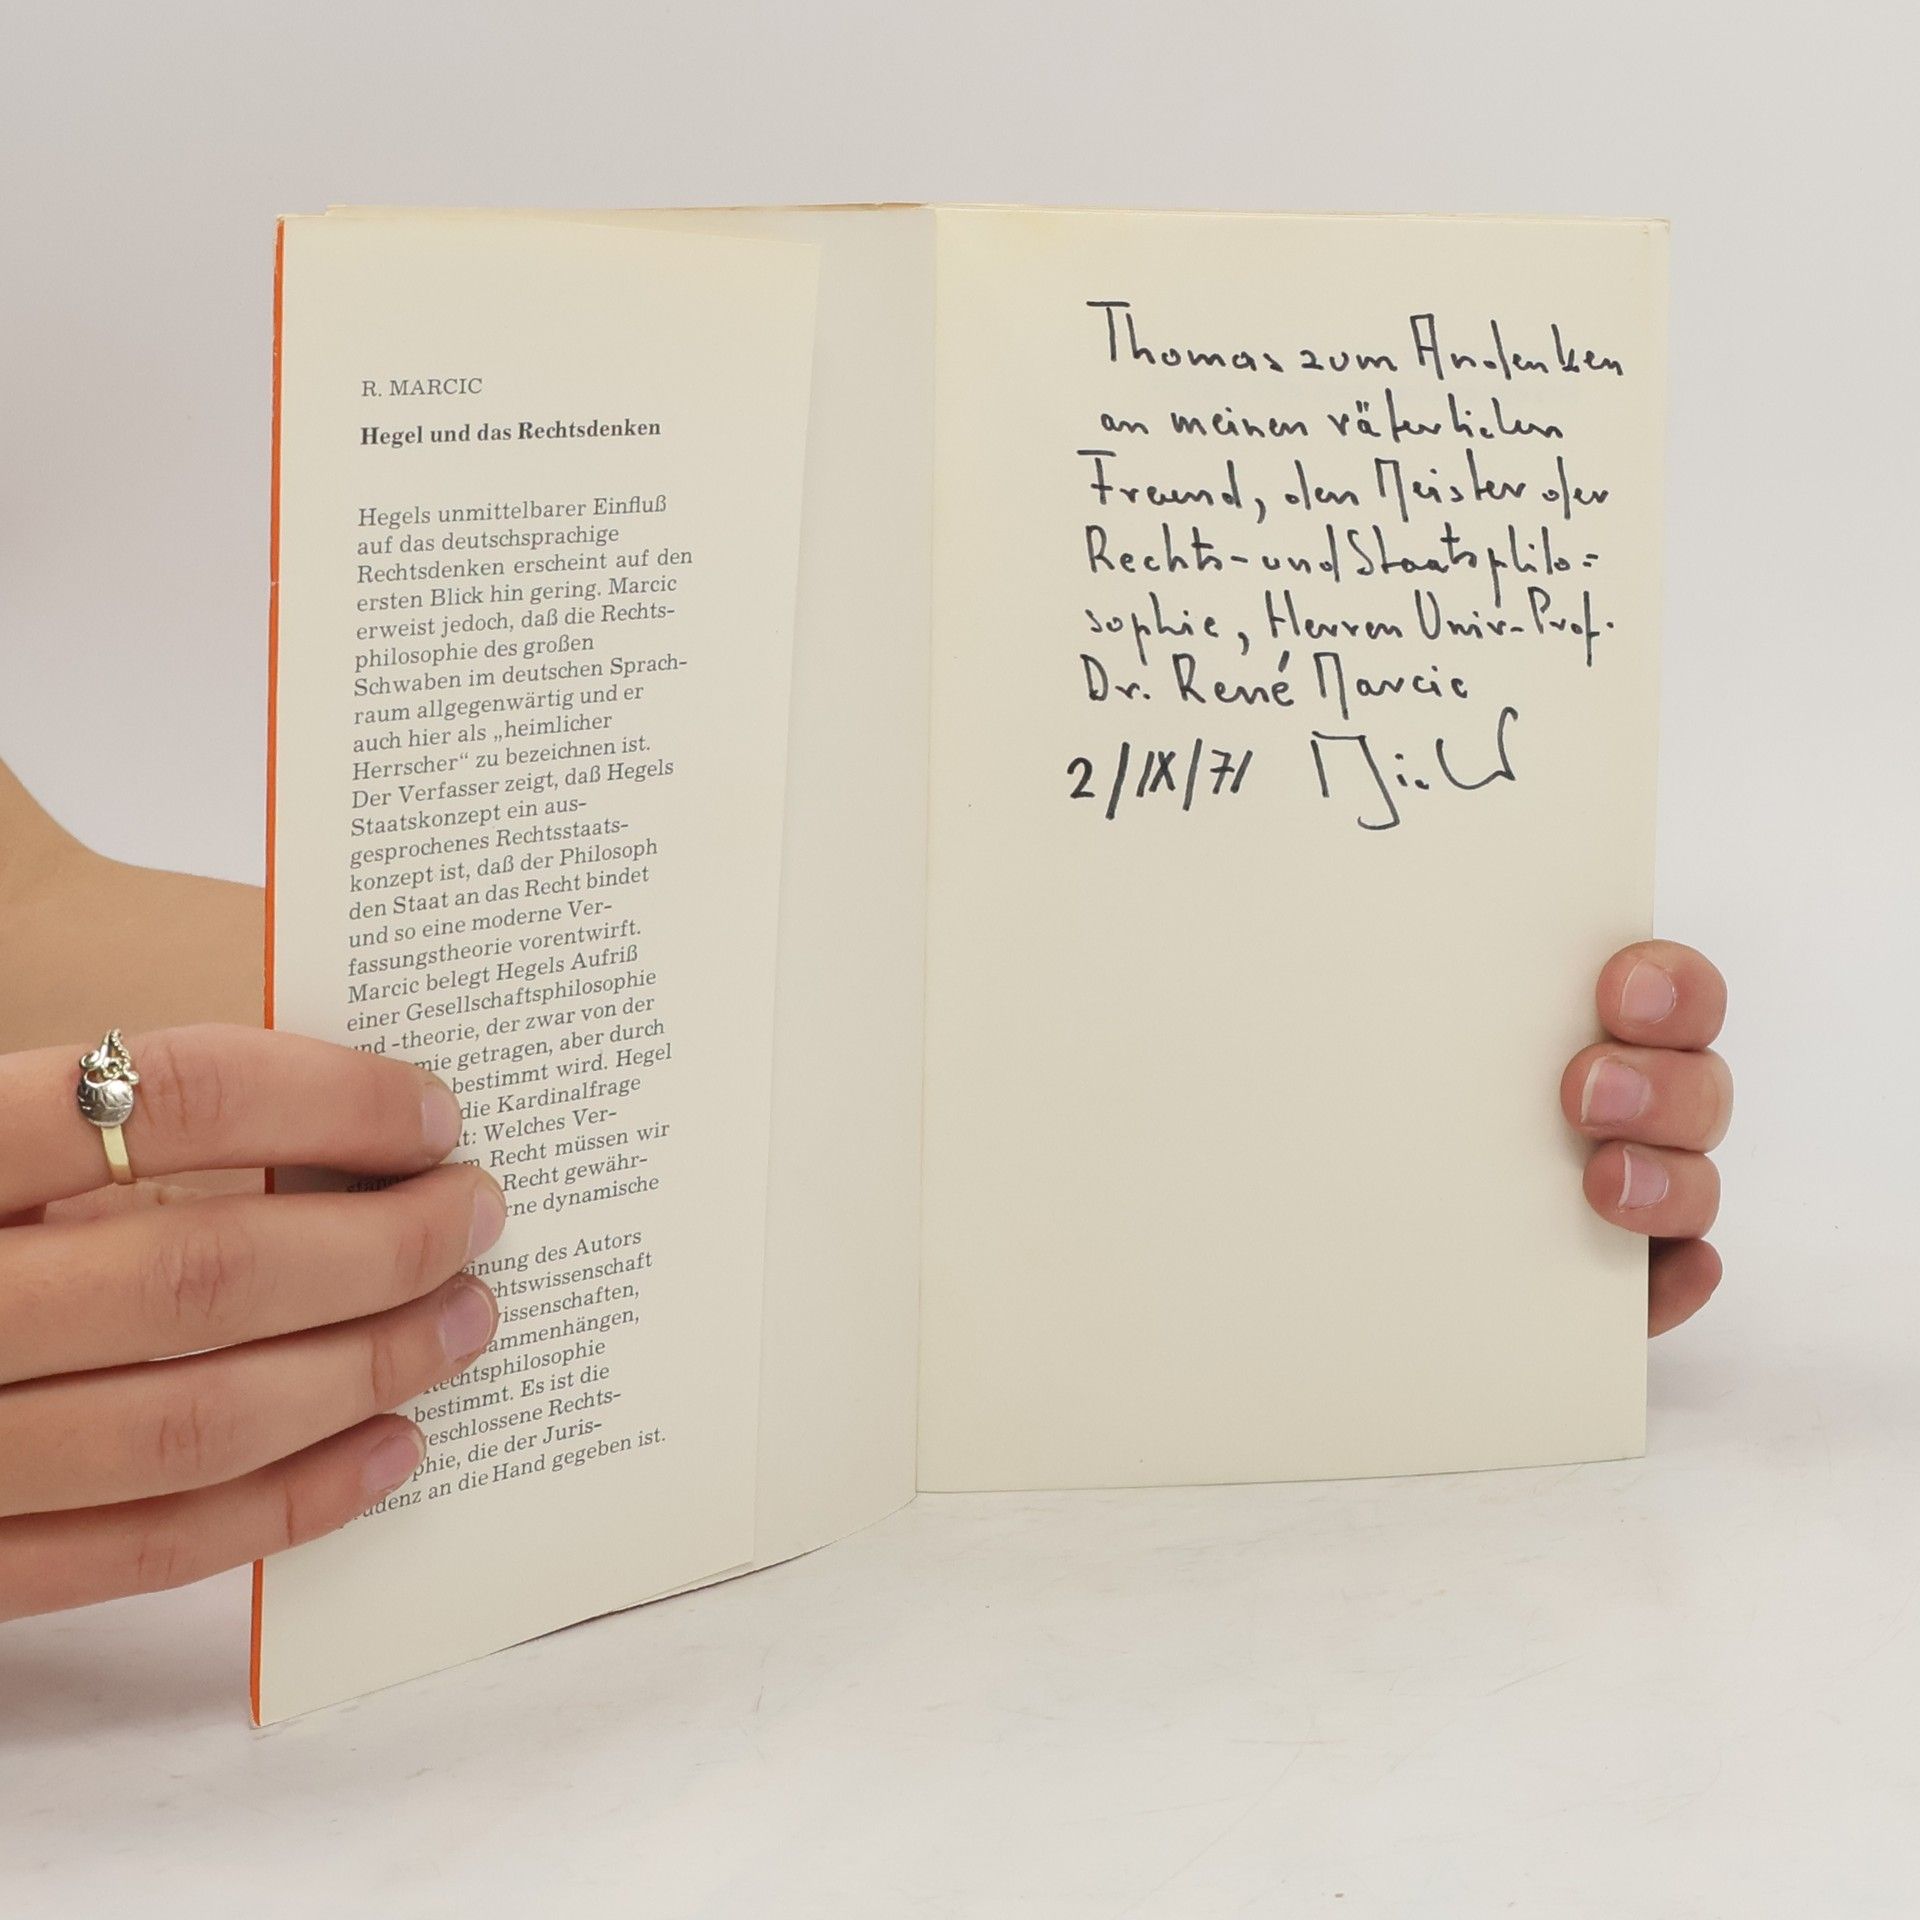 R. MARCIC
Hegel und das Rechtsdenken
Hegels unmittelbarer Einfluß
auf das deutschsprachige
Rechtsdenken erscheint auf den
ersten Blick hin gering. Marcic
erweist jedoch, daß die Rechts-
philosophie des großen
Schwaben im deutschen Sprach-
raum allgegenwärtig und er
auch hier als „heimlicher
Herrscher“ zu bezeichnen ist.
Der Verfasser zeigt, daß Hegels
Staatskonzept ein aus-
gesprochenes Rechtsstaats-
konzept ist, daß der Philosoph
den Staat an das Recht bindet
und so eine moderne Ver-
fassungstheorie vorentwirft.
Marcic belegt Hegels Aufriß
einer Gesellschaftsphilosophie
und -theorie, der zwar von der
getragen, aber durch
bestimmt wird. Hegel
die Kardinalfrage
Welches Ver-
Recht müssen wir
Recht gewähr-
dynamische
des Autors
bestimmt. Es ist die
Rechts-
die der Juris-
an die Hand gegeben ist.
Thomas zum Andenken
an meinen väterlichen
Freund, den Meister der
Rechts- und Staatsphilo=
sophie, Herren Univ-Prof.
Dr. René Marcic
2/IX/71